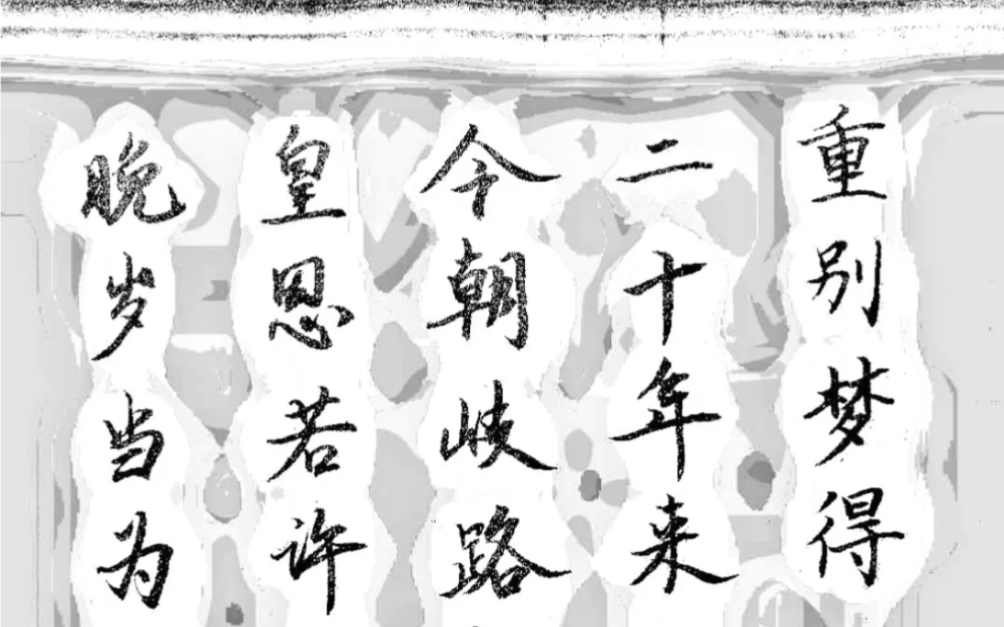 重别梦得
二十年来
今朝岐路
皇恩若许
晚岁当为